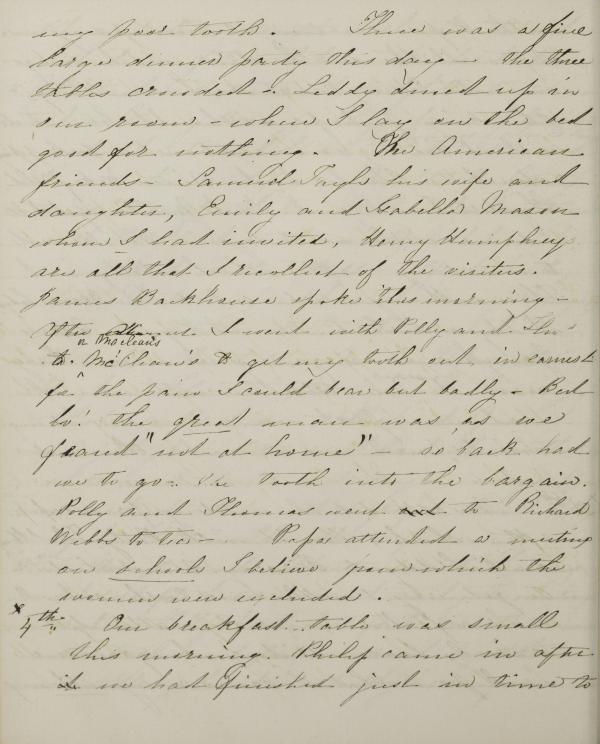 my poor tooth. There was a fine
large dinner party this day - the three
tables crowded - Liddy dined up in
our room - where I lay on the bed
good for nothing. The American
friends - Samuel Tayler his wife and
daughter, Emily and Isabella Mason
whom I had invited, Henry Humphrey
are all that I recollect of the visitors.
James Backhouse spoke this morning -
After I went with Polly and Tho
McClean's
to McClean's to get my tooth out in earnest
for the pain I could bear but badly - But
lo! the great man was as we
feared "not at home" - so back had
we to go - tooth into the bargain.
Polly and Thomas went out to Richard
Webbs to tea - Papa attended a meeting
on schools I believe from which the
women were excluded.
x 4th " Our breakfast table was small
this morning. Philip came in after
it we had finished just in time to